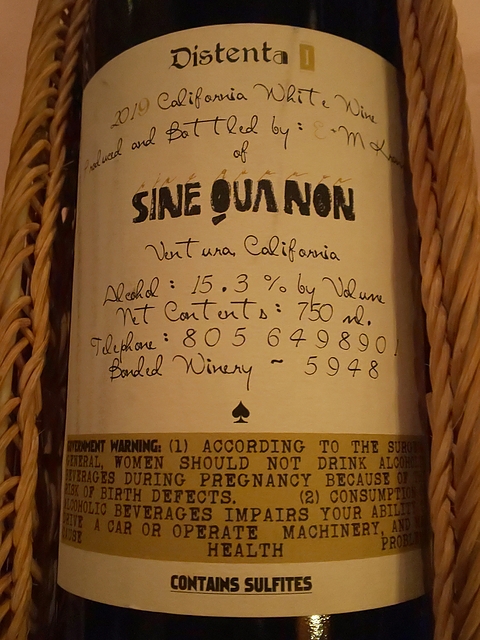 Distenta I
2019 California White Wine
and Bottled by: E-M
of
SINE QUA NON
Ventura, California
Alcohol: 15.3 % by Volume
Net Contents: 750 ml.
Telephone: 805 6498901
Bonded Winery ~ 5948
WARNING: (1) ACCORDING TO THE
WOMEN SHOULD NOT DRINK
BEVERAGES DURING PREGNANCY BECAUSE OF
RISK OF BIRTH DEFECTS. (2)
ALCOHOLIC BEVERAGES IMPAIRS YOUR
A CAR OR OPERATE MACHINERY, AND
HEALTH
CONTAINS SULFITES